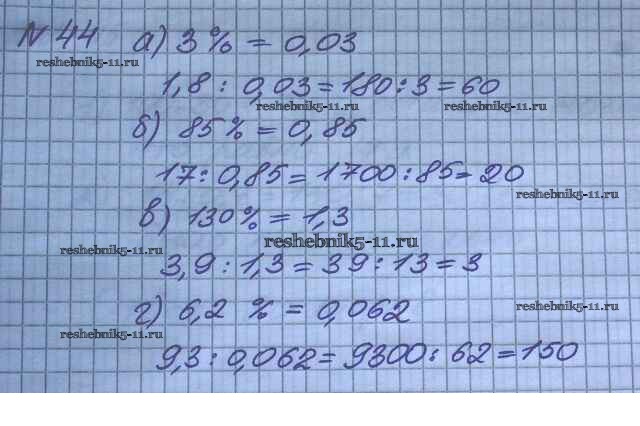 № 44 а) 3% = 0,03
reshebnik5-11.ru
1,8 : 0,03 = 180 : 3 = 60
reshebnik5-11.ru reshebnik5-11.ru
б) 85% = 0,85
17 : 0,85 = 1700 : 85 = 20
reshebnik5-11.ru
в) 130% = 1,3
reshebnik5-11.ru
reshebnik5-11.ru
3,9 : 1,3 = 39 : 13 = 3
г) 6,2 % = 0,062
reshebnik5-11.ru
reshebnik5-11.ru
9,3 : 0,062 = 9300 : 62 = 150